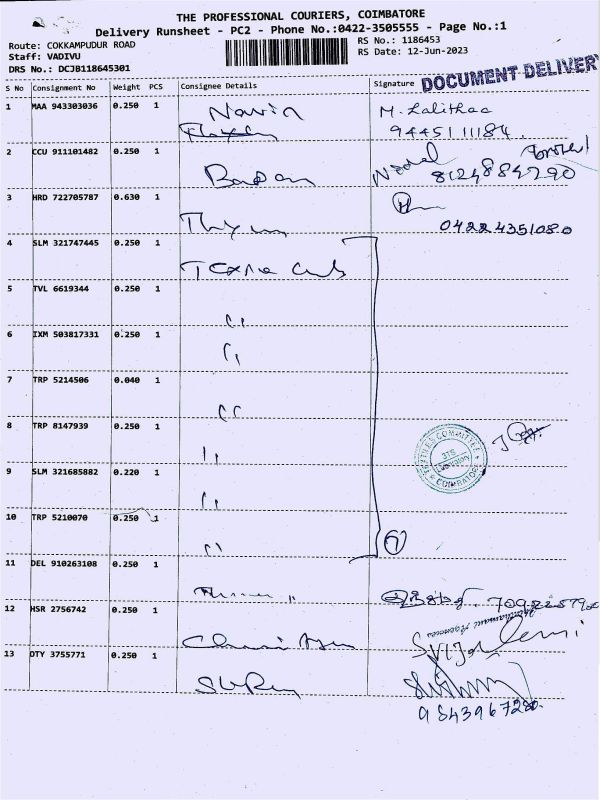 THE PROFESSIONAL COURIERS, COIMBATORE
Delivery Runsheet - PC2 - Phone No.:0422-3505555 - Page No.:1
Route: COKKAMPUDUR ROAD
Staff: VADIVU
DRS No.: DCJB118645301
RS No.: 1186453
RS Date: 12-Jun-2023
DOCUMENT DELIVERY
S No Consignment No Weight PCS Consignee Details Signature
1 MAA 943303036 0.250 1 Navin M. Lalithaa
9445111184
2 CCU 911101482 0.250 1
8124884290
3 HRD 722705787 0.630 1
04224351080
4 SLM 321747445 0.250 1
5 TVL 6619344 0.250 1 ,,
6 IXM 503817331 0.250 1 ,,
7 TRP 5214506 0.040 1 ,,
8 TRP 8147939 0.250 1 ,,
TEXTILES COMMITTEE
COIMBATORE
9 SLM 321685882 0.220 1 ,,
10 TRP 5210070 0.250 1 ,,
7
11 DEL 910263108 0.250 1
12 HSR 2756742 0.250 1
13 OTY 3755771 0.250 1
9843967280